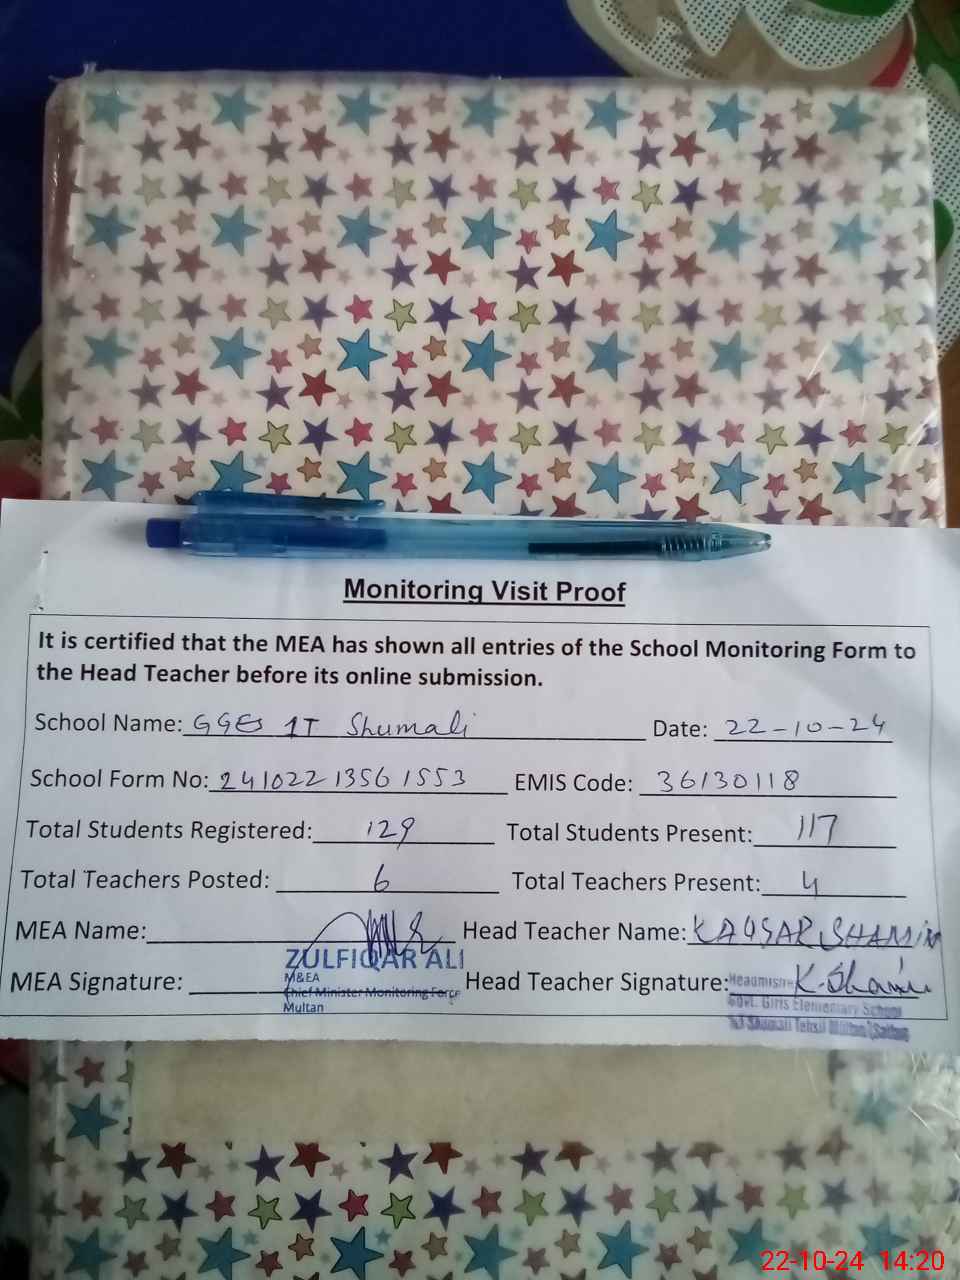 Monitoring Visit Proof
It is certified that the MEA has shown all entries of the School Monitoring Form to
the Head Teacher before its online submission.
School Name: GGES 1T Shumali Date: 22-10-24
School Form No: 241022 1356 1553 EMIS Code: 36130118
Total Students Registered: 129 Total Students Present: 117
Total Teachers Posted: 6 Total Teachers Present: 4
MEA Name: Head Teacher Name: KAUSAR SHAMIM
ZULFIQAR ALI
MEA Signature: M&EA Head Teacher Signature: Headmistress K. Shamim
Chief Minister Monitoring Force Govt. Girls Elementary School
Multan Shumali Tehsil Multan (Saddar
22-10-24 14:20